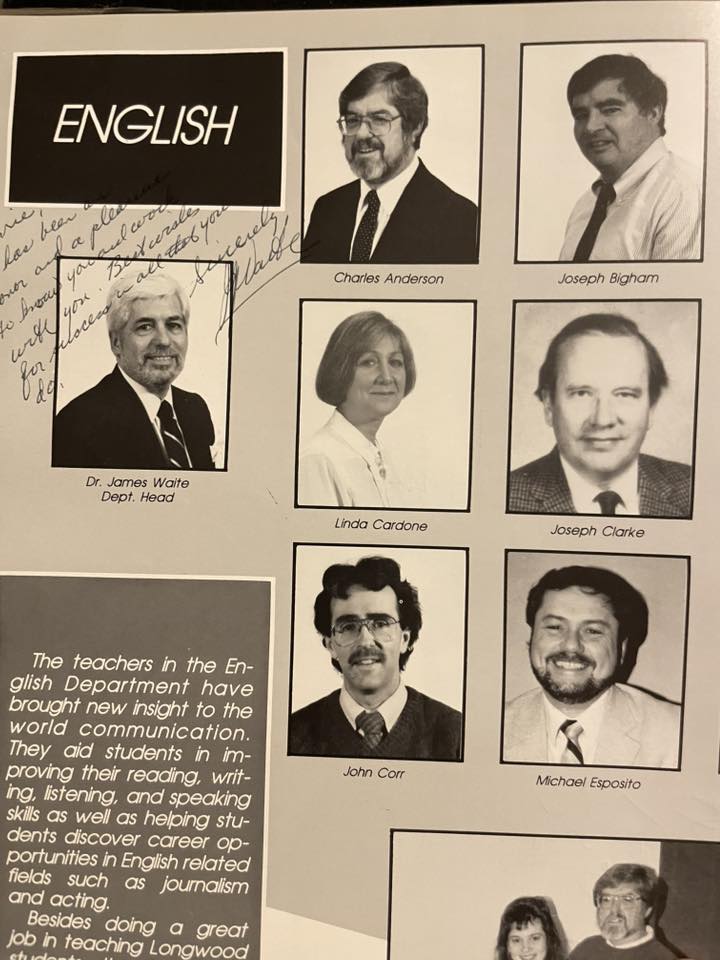 ENGLISH
has been an
honor and a pleasure
to know you and work
with you. Best wishes
for success in all that you
do.
Sincerely,
J Waite
Charles Anderson
Joseph Bigham
Dr. James Waite
Dept. Head
Linda Cardone
Joseph Clarke
John Corr
Michael Esposito
The teachers in the En-
glish Department have
brought new insight to the
world communication.
They aid students in im-
proving their reading, writ-
ing, listening, and speaking
skills as well as helping stu-
dents discover career op-
portunities in English related
fields such as journalism
and acting.
Besides doing a great
job in teaching Longwood